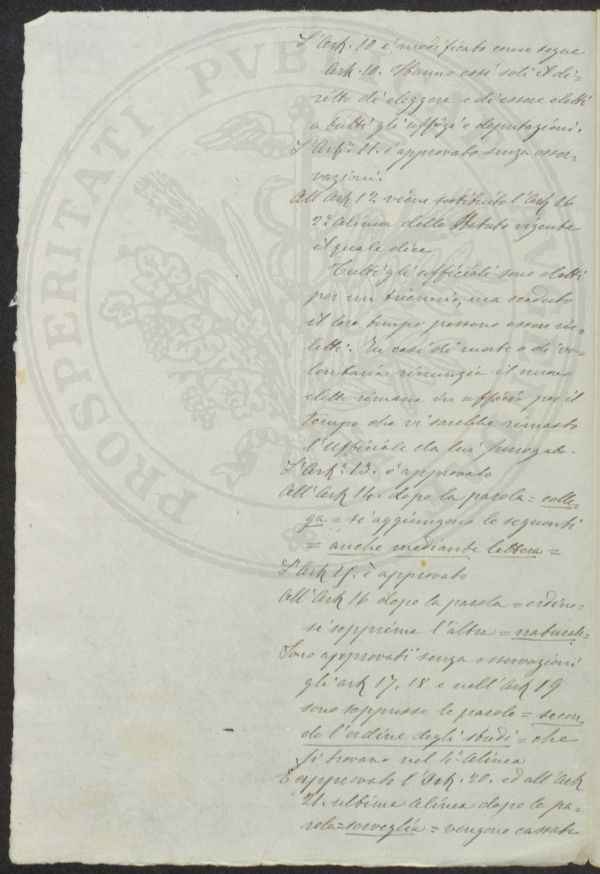 L'Art. 10 è modificato come segue
Art. 10. Hanno essi soli il di=
ritto di eleggere e di essere eletti
a tutti gli uffizi e deputazioni.
L'Art.° 11. è approvato senza osser-
vazioni.
All'Art 12 viene sostituito l'Art 16
2° Alinea dello Statuto vigente
il quale dice
Tutti gli ufficiali sono eletti
per un triennio, ma scaduto
il loro tempo possono essere rie=
letti. In casi di morte o di vo=
lontaria rinunzia il nuovo
eletto rimane in ufficio per il
tempo che vi sarebbe rimasto
l'Ufficiale da lui surrogato.
L'Art.° 13. è approvato
All'Art 14. dopo la parola = colle=
ga = si aggiungono le seguenti
= anche mediante lettera =
L'Art 15. è approvato
All'Art 16 dopo la parola = ordine=
si sopprime l'altra = naturale=
Sono approvati senza osservazioni
gli art 17, 18 e nell'Art 19
sono soppresse le parole = secon=
do l'ordine degli studi = che
si trovano nel 4° Alinea
È approvato l'Art. 20. ed all'Art
21. ultimo alinea dopo la pa=
rola = sorveglia = vengono cassate
PROSPERITATI PVBLICAE AVG